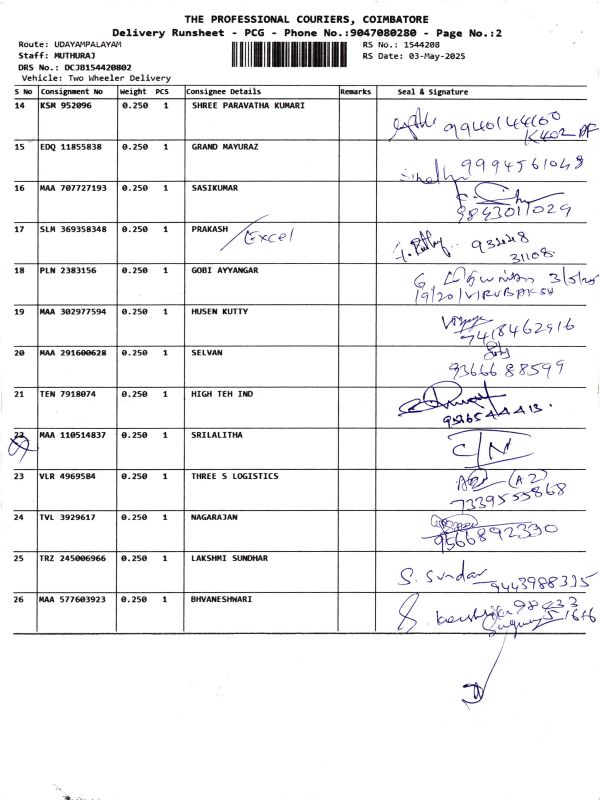 THE PROFESSIONAL COURIERS, COIMBATORE
Delivery Runsheet - PCG - Phone No.:9047080280 - Page No.:2
Route: UDAYAMPALAYAM RS No.: 1544208
Staff: MUTHURAJ RS Date: 03-May-2025
DRS No.: DCJB154420802
Vehicle: Two Wheeler Delivery
S No Consignment No Weight PCS Consignee Details Remarks Seal & Signature
14 KSM 952096 0.250 1 SHREE PARAVATHA KUMARI
9940144160
K402 PF
15 EDQ 11855838 0.250 1 GRAND MAYURAZ
9994561048
16 MAA 707727193 0.250 1 SASIKUMAR
9843011029
17 SLM 369358348 0.250 1 PRAKASH
Excel
31108.
18 PLN 2383156 0.250 1 GOBI AYYANGAR
3/5/25
19/20/VIRUBAKSH
19 MAA 302977594 0.250 1 HUSEN KUTTY
7418462916
20 MAA 291600628 0.250 1 SELVAN
9366688599
21 TEN 7918074 0.250 1 HIGH TEH IND
22 MAA 110514837 0.250 1 SRILALITHA
C/N
23 VLR 4969584 0.250 1 THREE S LOGISTICS
(A2)
7339555868
24 TVL 3929617 0.250 1 NAGARAJAN
9566892330
25 TRZ 245006966 0.250 1 LAKSHMI SUNDHAR
S. Sundar 9443988335
26 MAA 577603923 0.250 1 BHVANESHWARI